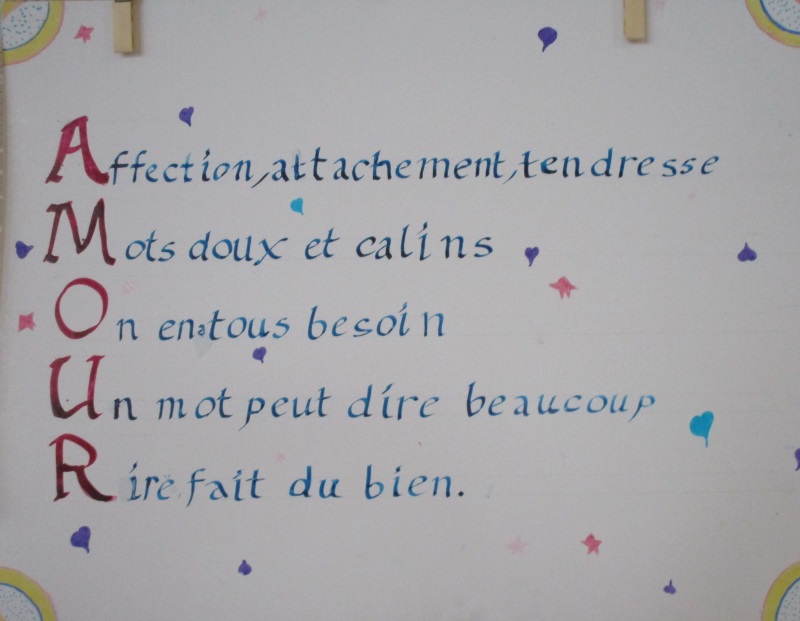 Affection, attachement, tendresse
Mots doux et calins
On en tous besoin
Un mot peut dire beaucoup
Rire fait du bien.